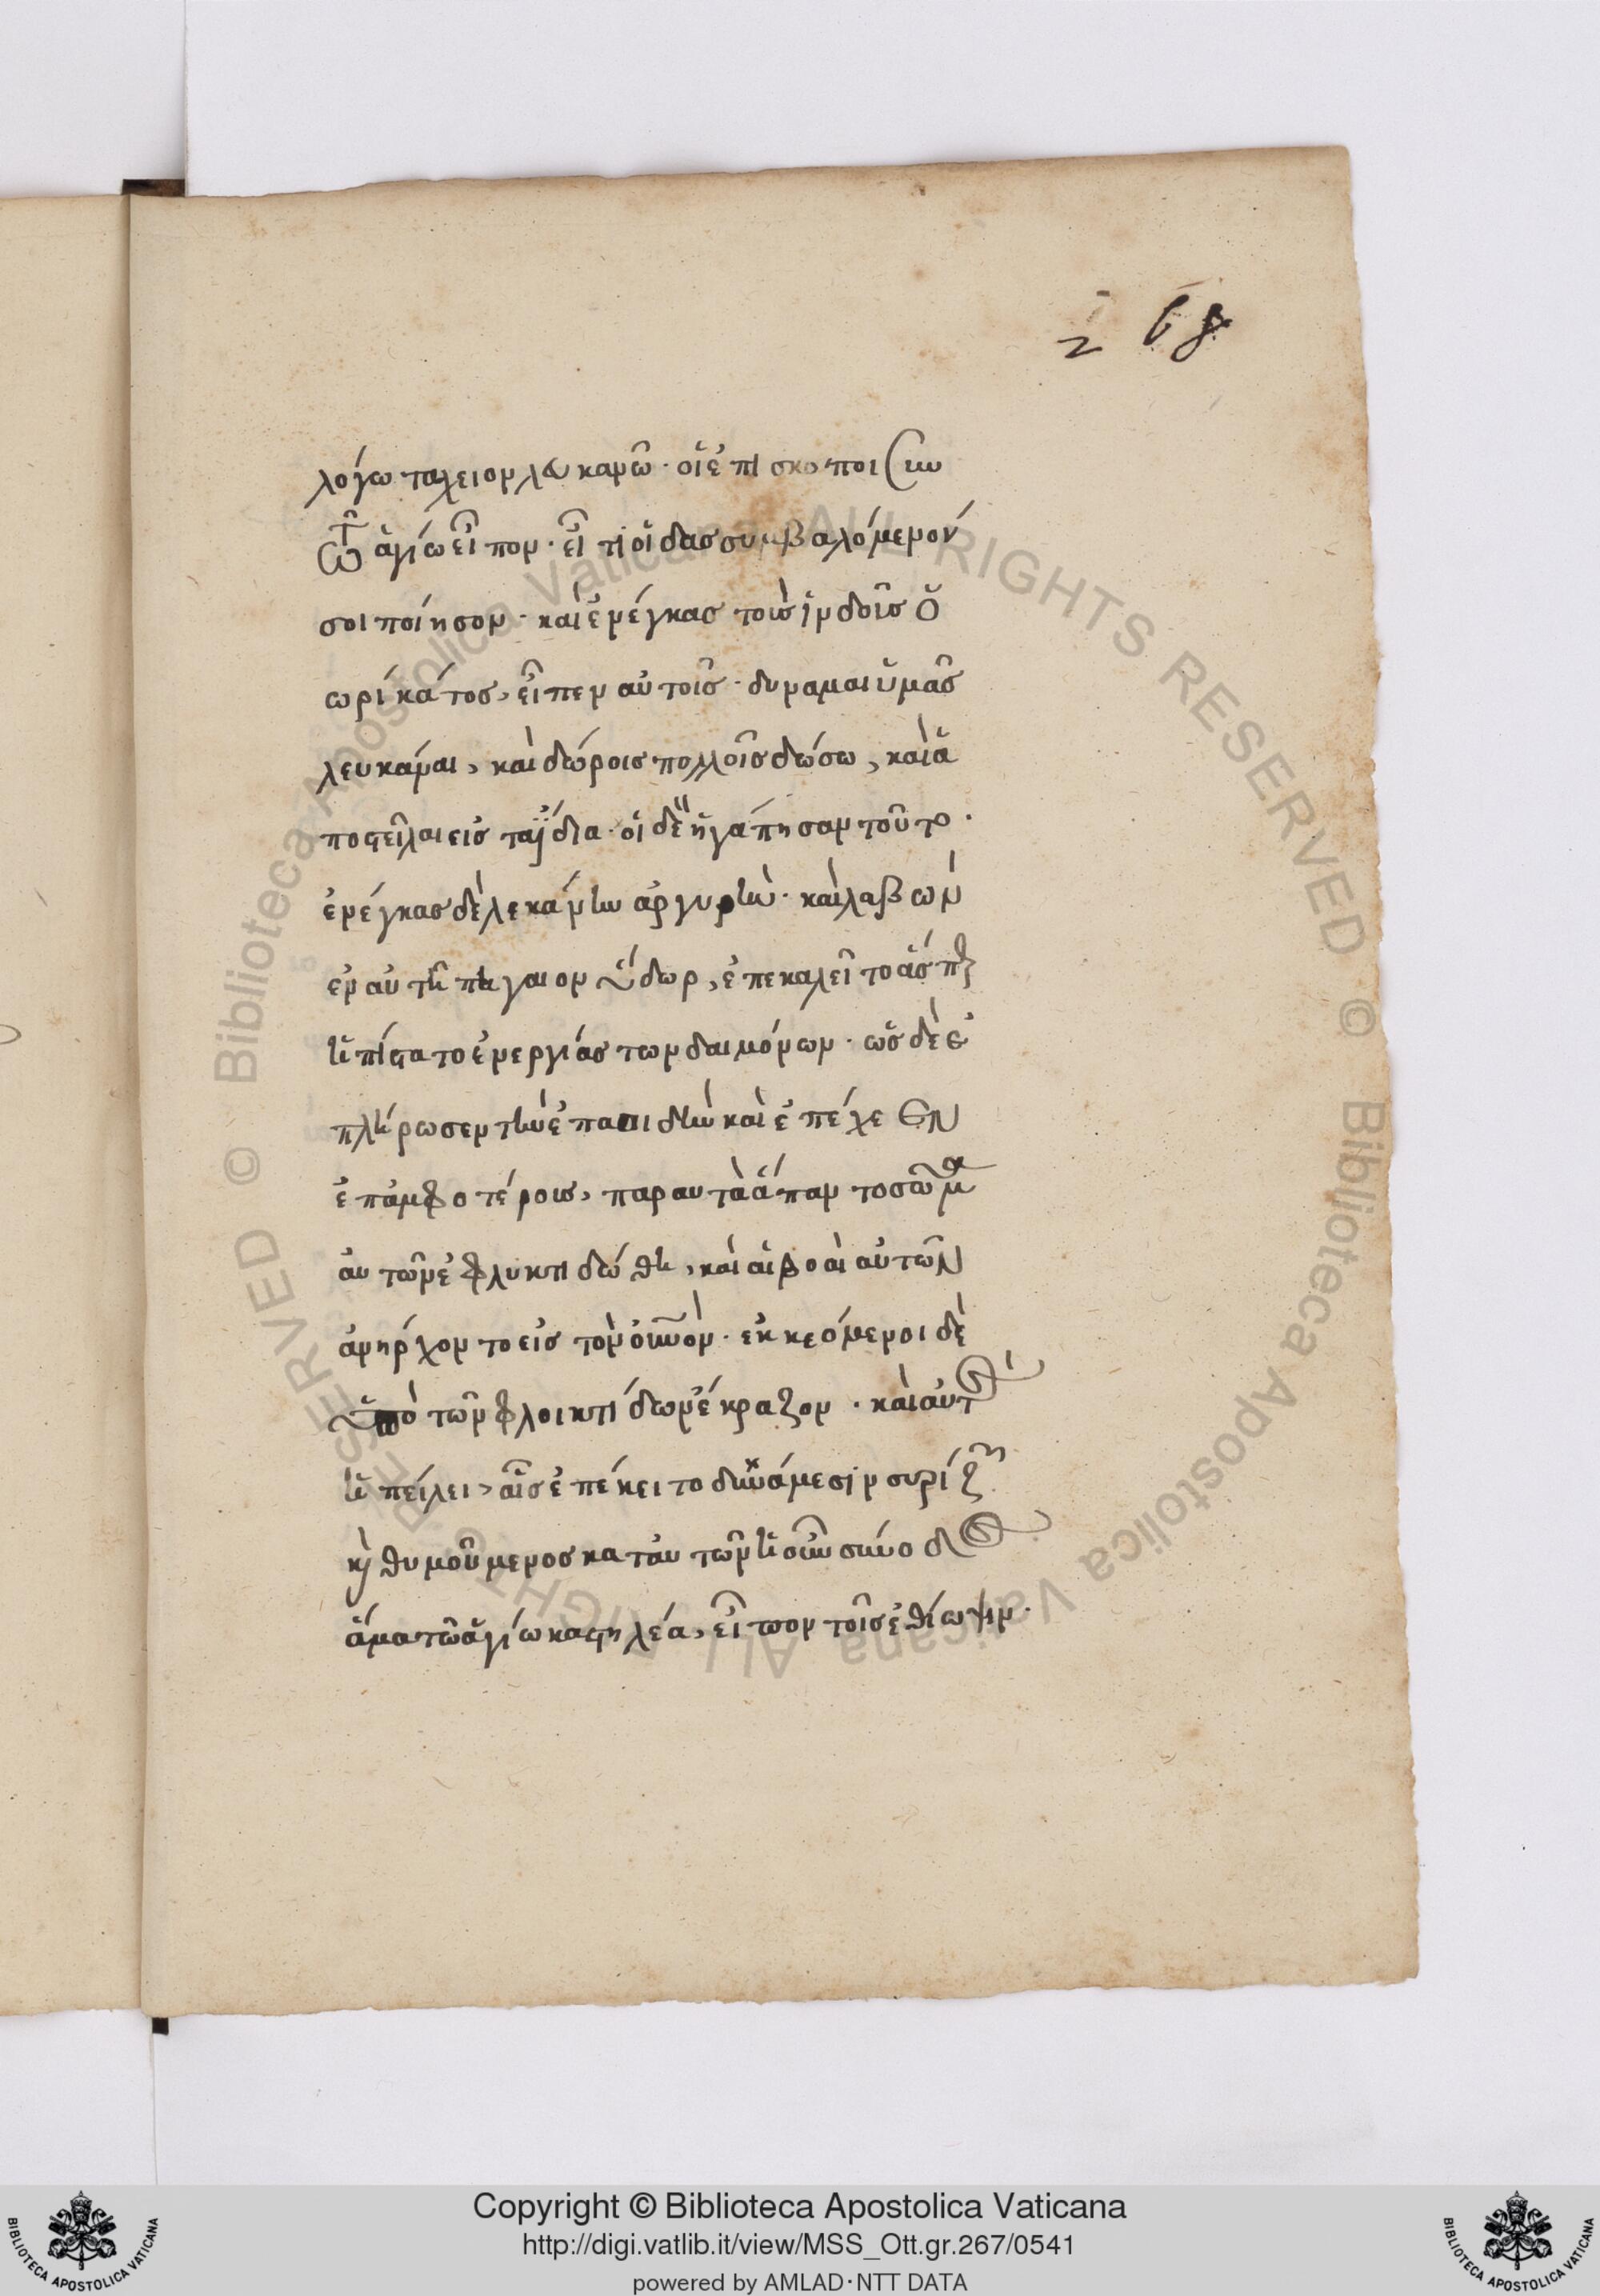 268
λόγω ταχειον λευκανῶ · οἱ ἐπίσκοποι σὺν
τῶ ἁγίω εἶπον · εἴ τι οἶδας συμβαλόμενόν
σοι ποίησον · καὶ ἐνέγκας τοὺς ἰνδοὺς ὁ
ωρίκάτος, εἶπεν αὐτοῖς · δυναμαι ὑμᾶς
λευκάναι, καὶ δώροις πολλοῖς δώσω, καὶ ἀ
ποστεῖλαι εἰς τα ἴδια · οἱ δὲ ἠγάπησαν τοῦτο ·
ἐνέγκας δὲ λεκάνην ἀργυρὴν · καὶ λαβων
ἐν αὐτῆ πηγαιον ὕδωρ, ἐπεκαλεῖτο ἅσπερ
ἠπίστατο ἐνεργιάς των δαιμόνων · ὡς δὲ ἐ
πλήρωσεν τὴν ἐπαοιδὴν καὶ ἐπέχεεν
ἐπ ἀμφοτέροις, παραυτὰ ἅπαν το σῶμα
ἀυτῶν ἐφλυκτιδώθη, καὶ αἱ βοαὶ αὐτῶν
ἀνηρχοντο εἰς τὸν οὐνον · εκκεόμενοι δὲ
ὑπὸ τῶν φλοικτίδων ἐκραζον · καὶ αὐτὸς
ἠπείλει, αἷς ἐπέκειτο δυνάμεσιν συρίζων
κ θυμούμενος κατ ἀυτῶν ἡ οὖν σύνοδος
ἅμα τῶ ἁγίω καστηλέα, εἶπον τοῖς ἐθίωψιν ·
Copyright © Biblioteca Apostolica Vaticana
http://digi.vatlib.it/view/MSS_Ott.gr.267/0541
powered by AMLAD·NTT DATA
BIBLIOTECA APOSTOLICA VATICANA
BIBLIOTECA APOSTOLICA VATICANA